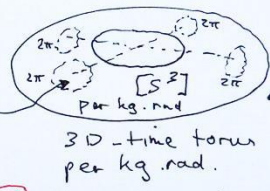 2π
2π
2π
2π
[S³]
per kg.rad
3D-time torus
per kg.rad.